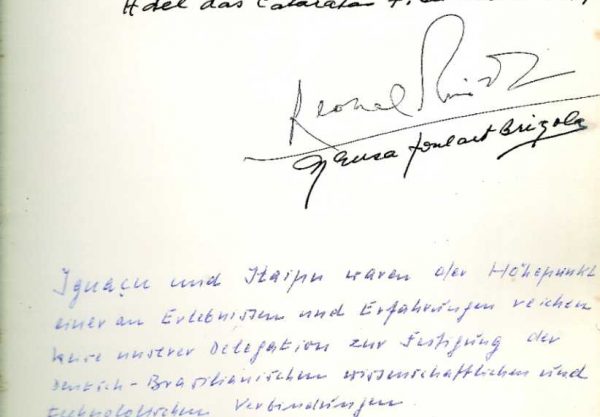 Hotel das Cataratas
Leonel Brizola
Neusa Goulart Brizola
Iguaçu und Itaipu waren der Höhepunkt
einer an Erlebnissen und Erfahrungen reichen
Reise unserer Delegation zur Festigung der
Deutsch-Brasilianischen wissenschaftlichen und
technologischen Verbindungen.